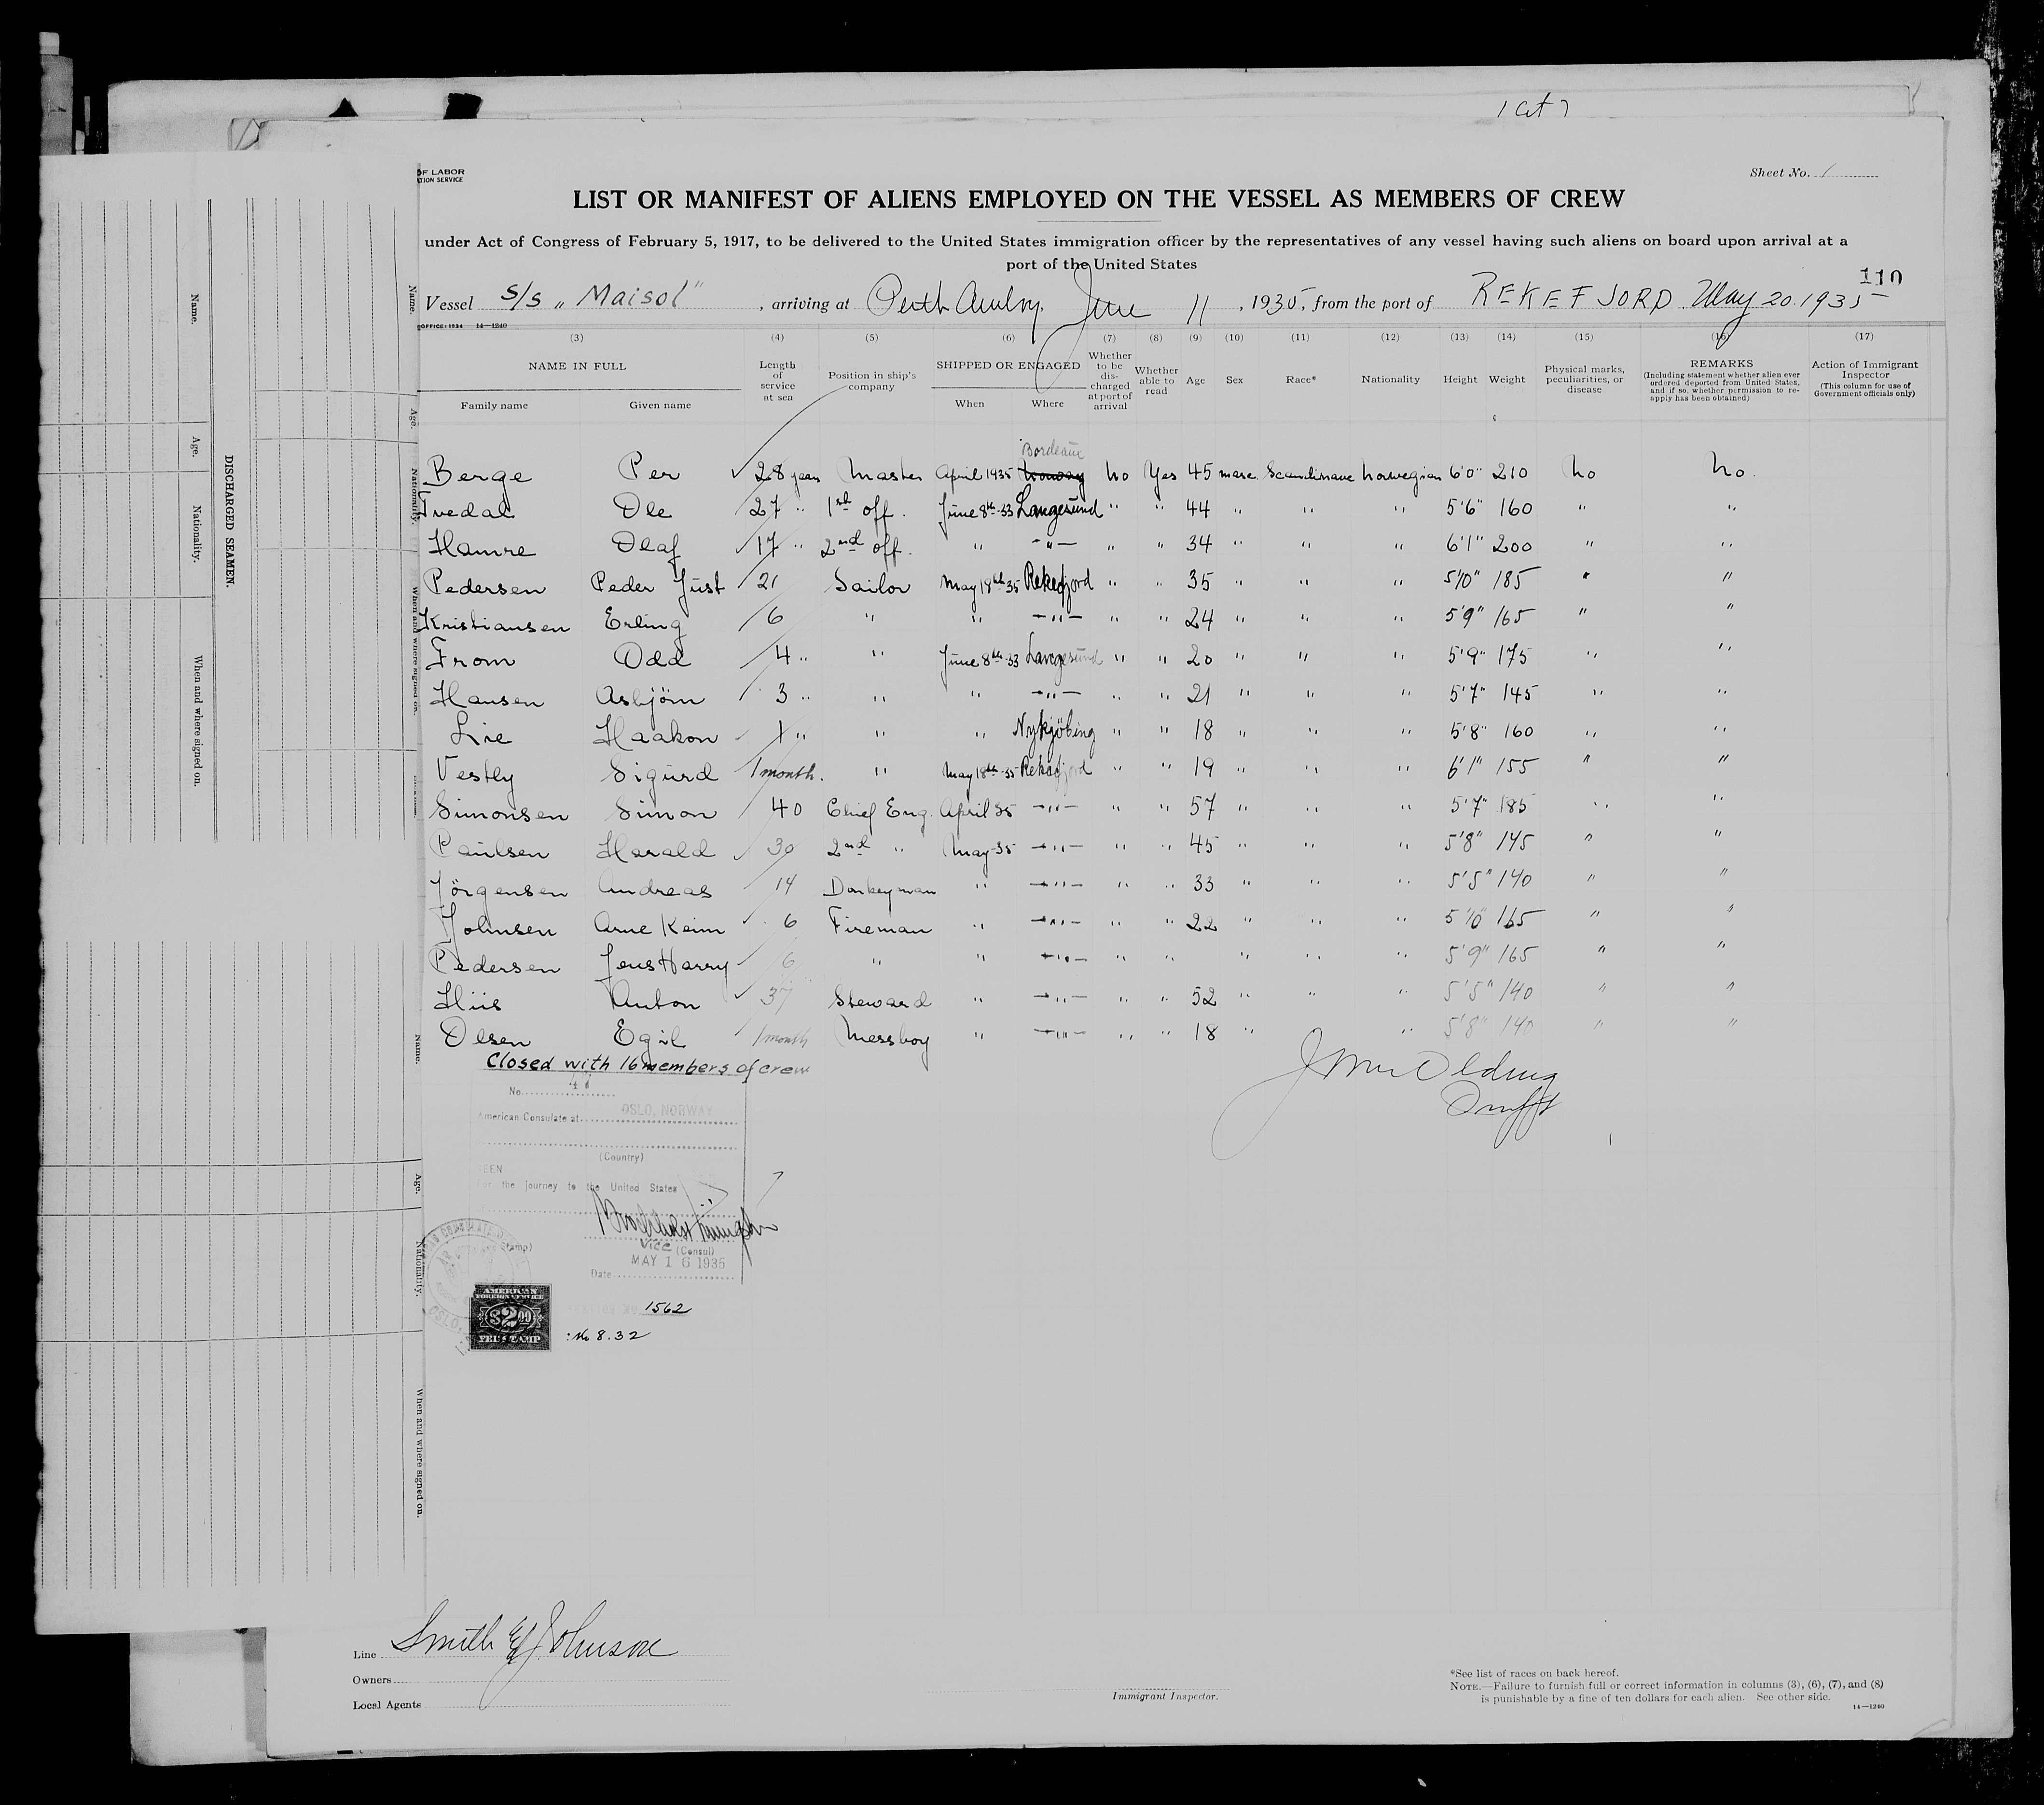 1 Cut 7
OF LABOR
TION SERVICE
Sheet No. 1
LIST OR MANIFEST OF ALIENS EMPLOYED ON THE VESSEL AS MEMBERS OF CREW
under Act of Congress of February 5, 1917, to be delivered to the United States immigration officer by the representatives of any vessel having such aliens on board upon arrival at a
port of the United States
110
Vessel S/S „Maisol", arriving at Perth Amboy, June 11, 1935, from the port of REKEFJORD May 20. 1935
OFFICE: 1934 14—1240
(3) (4) (5) (6) (7) (8) (9) (10) (11) (12) (13) (14) (15) (16) (17)
NAME IN FULL
Family name Given name
Length of service at sea
Position in ship's company
SHIPPED OR ENGAGED
When Where
Whether to be discharged at port of arrival
Whether able to read
Age
Sex
Race*
Nationality
Height
Weight
Physical marks, peculiarities, or disease
REMARKS
(Including statement whether alien ever ordered deported from United States, and if so, whether permission to re-apply has been obtained)
Action of Immigrant Inspector
(This column for use of Government officials only)
Bordeaux
Berge Per 28 years Master April 1935 Norway no Yes 45 masc. Scandinave norwegian 6'0" 210 no no.
Tvedal Ole 27 " 1st off. June 8th-33 Langesund " " 44 " " " 5'6" 160 " "
Hamre Olaf 17 " 2nd off. " -"- " " 34 " " " 6'1" 200 " "
Pedersen Peder Just 21 Sailor May 18th 35 Rekefjord " " 35 " " " 5'10" 185 " "
Kristiansen Erling 6 " " -"- " " 24 " " " 5'9" 165 " "
From Odd 4 " " June 8th-33 Langesund " " 20 " " " 5'9" 175 " "
Hansen Asbjörn 3 " " " -"- " " 21 " " " 5'7" 145 " "
Lie Haakon 1 " " " Nykjöbing " " 18 " " " 5'8" 160 " "
Vestly Sigurd 1 month. " May 18th-35 Rekefjord " " 19 " " " 6'1" 155 " "
Simonsen Simon 40 Chief Eng. April 35 -"- " " 57 " " " 5'7" 185 " "
Paulsen Harald 30 2nd " May-35 -"- " " 45 " " " 5'8" 145 " "
Jörgensen Andreas 14 Donkeyman " -"- " " 33 " " " 5'5" 140 " "
Johnsen Arne Keim 6 Fireman " -"- " " 22 " " " 5'10" 165 " "
Pedersen Jens Harry 6 " " -"- " " " " " 5'9" 165 " "
Hiis Anton 37 Steward " -"- " " 52 " " " 5'5" 140 " "
Olsen Egil 1 month Messboy " -"- " " 18 " " 5'8" 140 " "
Closed with 16 members of crew
No.
American Consulate at OSLO, NORWAY
(Country)
For the journey to the United States
Vice (Consul)
MAY 16 1935
Date
AMERICAN
FOREIGN SERVICE
$2.00
FEE STAMP
1562
: No 8.32
Name.
Age.
Nationality.
When and where signed on.
DISCHARGED SEAMEN.
Name.
Age.
Nationality.
When and where signed on.
Name.
Age.
Nationality.
When and where signed on.
Line Smith & Johnson
Owners
Local Agents
Immigrant Inspector.
*See list of races on back hereof.
NOTE.—Failure to furnish full or correct information in columns (3), (6), (7), and (8)
is punishable by a fine of ten dollars for each alien. See other side.
14—1240